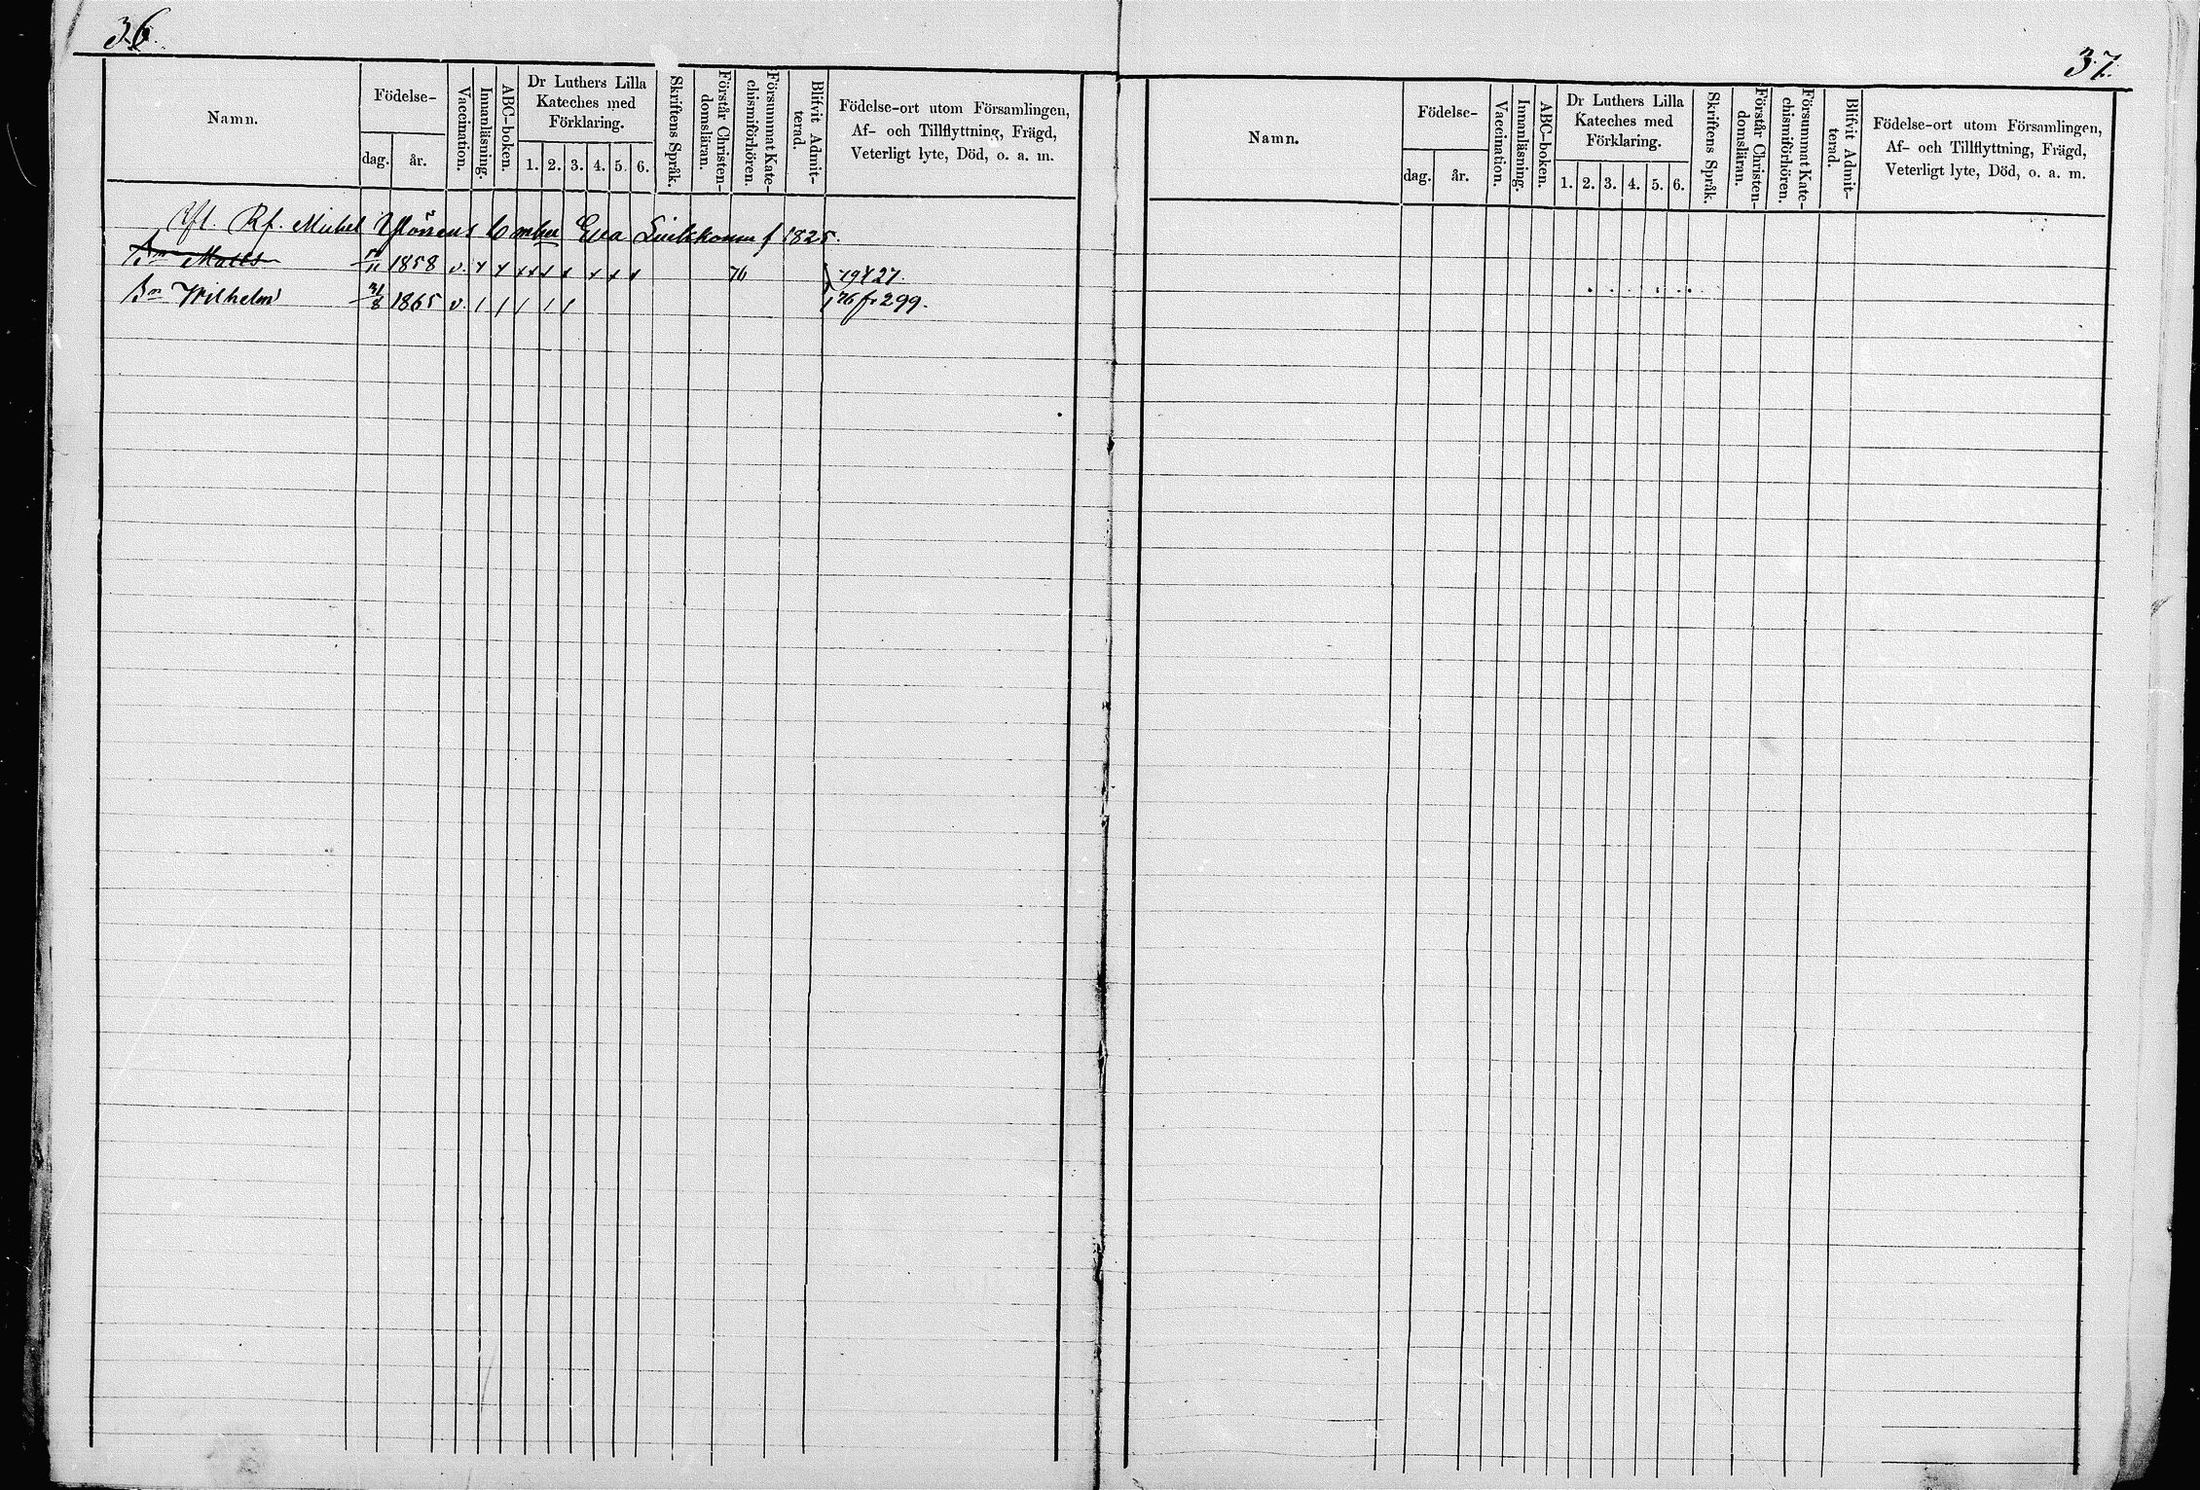 36.
37.
Namn.
Födelse-
dag.
år.
Vaccination.
Innanläsning.
ABC-boken.
Dr Luthers Lilla
Kateches med
Förklaring.
1. 2. 3. 4. 5. 6.
Skriftens Språk.
Förstår Christen-
domsläran.
Försummat Kate-
chismiförhören.
Blifvit Admit-
terad.
Födelse-ort utom Församlingen,
Af- och Tillflyttning, Frägd,
Veterligt lyte, Död, o. a. m.
Rf. Michel Enka Eva f 1825.
Sn Matts 1858 v. x x x x x x x x x 76 79 t 27.
Sn Wilhelm 31/8 1865 v. / / / / / 76 fr 299.
Namn.
Födelse-
dag.
år.
Vaccination.
Innanläsning.
ABC-boken.
Dr Luthers Lilla
Kateches med
Förklaring.
1. 2. 3. 4. 5. 6.
Skriftens Språk.
Förstår Christen-
domsläran.
Försummat Kate-
chismiförhören.
Blifvit Admit-
terad.
Födelse-ort utom Församlingen,
Af- och Tillflyttning, Frägd,
Veterligt lyte, Död, o. a. m.